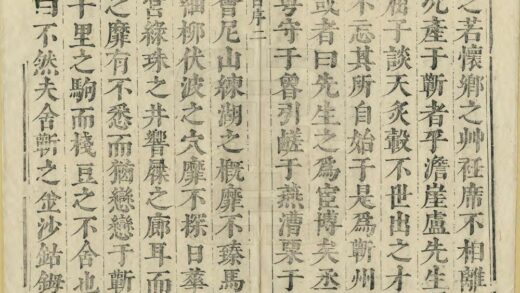 之若懷鄉之艸衽席不相離
產于蘄者乎澹崖盧先生
于談天炙轂不世出之才
不忘其所自始于是爲蘄州
或者曰先生之爲宦博矣丞
粵守于魯引鹺于燕漕粟于
序二
會尼山練湖之概靡不臻馬
細柳伏波之穴靡不探日華
宮綠珠之井響屧之廊耳而
之靡有不悉而猶戀戀于蘄
千里之駒而棧豆之不舍也
曰不然夫舍蘄之金沙鈷鉧